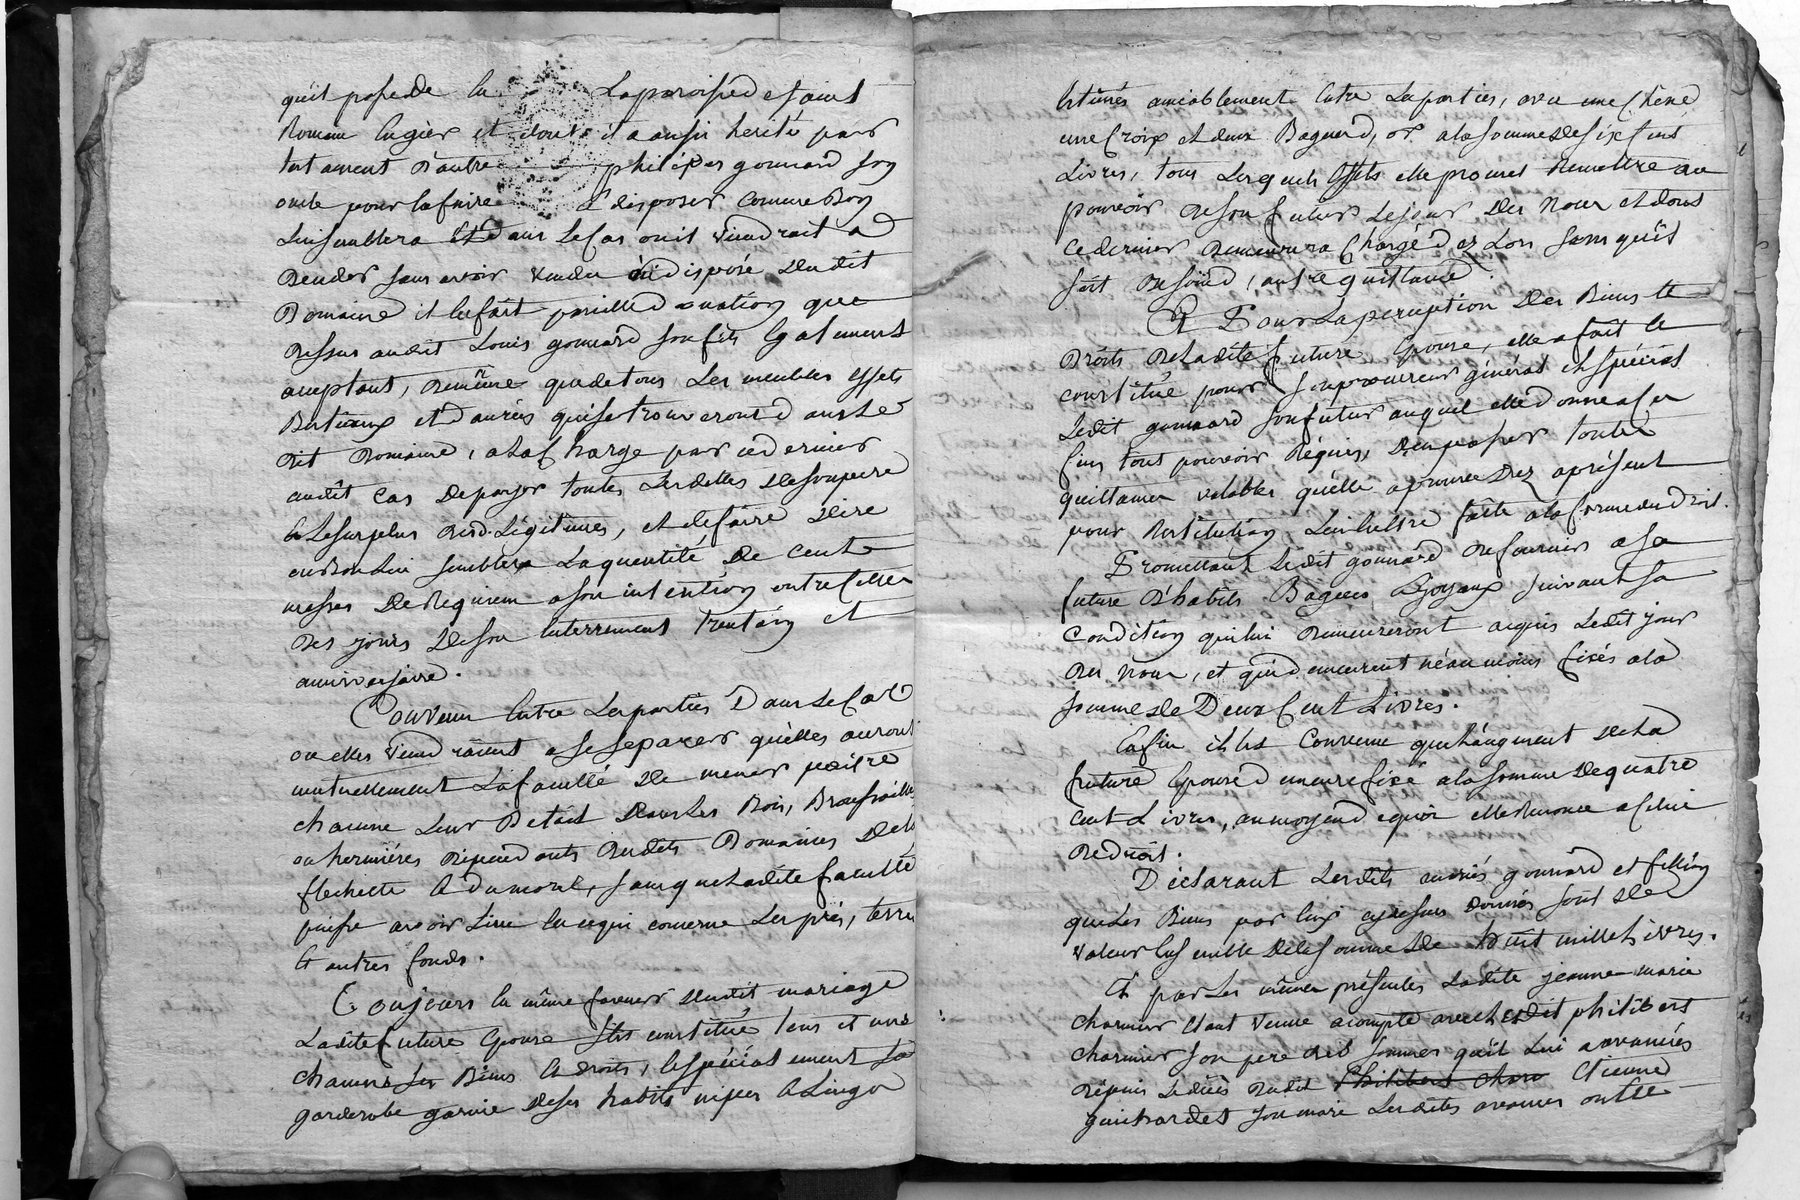 quil possede en la paroisse de saint
Romain lugier et dont il a aussi herité par
testament d'autre philiper gonnard son
oncle pour la faire et disposer comme bon
lui semblera et dans le cas ou il viendrait a
deceder sans avoir vendu ou disposé dudit
Domaine il lui fait pareille donation que
dessus audit Louis gonnard son fils egalement
acceptant, de même que de tous les meubles effets
Bestiaux et danrées qui se trouveront dans le
dit Domaine, a la charge par ce dernier
audit cas de payer toutes les dettes de son pere
legitimes, et de faire dire
ou bon lui semblera la quantité de cent
messes de Requiem a son intention outre celles
des jours de son enterrement trentain et
anniversaire.
Convenu entre les parties que dans le cas
ou elles viendraient a se separer quelles auront
mutuellement la faculté de mener paitre
chacune leur Betail dans les Bois, Broussailles
ou hermières dépendants desdits Domaines de la
flechette et dumont, sans que ladite faculté
puisse avoir lieu en ce qui concerne les prés, terres
et autres fonds.
Toujours en même faveur dudit mariage
ladite future epouse s'est constituée tous et uns
chacuns ses Biens et droits, et spécialement sa
garderobe garnie de ses habits nipes et linge
estimés amiablement entre les parties, avec une chene
une croix et deux Bagues d'or a la somme de six cent
Livres, tous lesquels effets elle promet remettre au
pouvoir de son futur le jour des noces et dont
ce dernier demeurera chargé des lors sans qu'il
soit besoin d'autre quittance
Et Pour la perception des Biens et
Droits de ladite future epouse, elle a fait et
constitué pour son procureur général et spécial
ledit gonnard son futur auquel elle donne a ces
fins tout pouvoir requis, d'en passer toutes
quittances valables quelle aprouve dez aprésent
pour restitution lui en être faite a la forme du droit.
Promettant ledit gonnard de fournir a sa
future d'habits Bagues et joyaux suivant sa
condition qui lui demeureront acquis ledit jour
des noces, et qui demeurent néanmoins fixés a la
somme de Deux Cent Livres.
Enfin il est convenu que l'augment de la
future epouse demeure fixé a la somme de quatre
cent Livres, au moyen de quoi elle renonce a celui
de droit.
Déclarant lesdits mariés gonnard et fillion
que les Biens par eux cy dessus donnés sont de
valeur ensemble de la somme de huit mille Livres.
Et par les mêmes présentes ladite jeanne marie
charmier etant venue a compte avec ledit philibert
charmier son pere des sommes quil lui a avancées
depuis le décès dudit Philibert char Etienne
guichardet son mari lesdites avances ont été